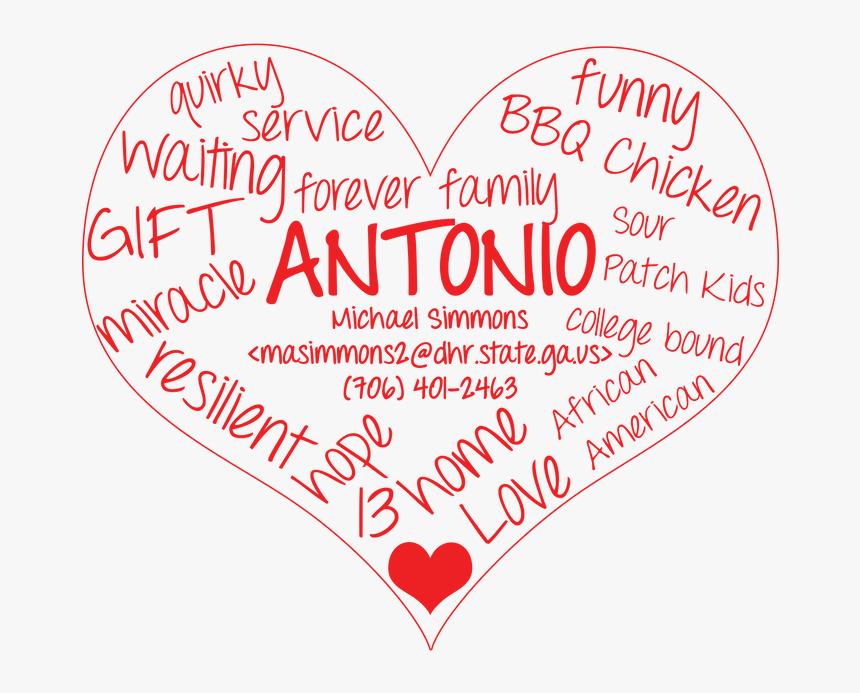 quirky
service
waiting
forever family
GIFT
ANTONIO
miracle
Michael Simmons
<masimmons2@dhr.state.ga.us>
(706) 401-2463
resilient
hope
13
home
Love
funny
BBQ Chicken
Sour
Patch Kids
College bound
African
American